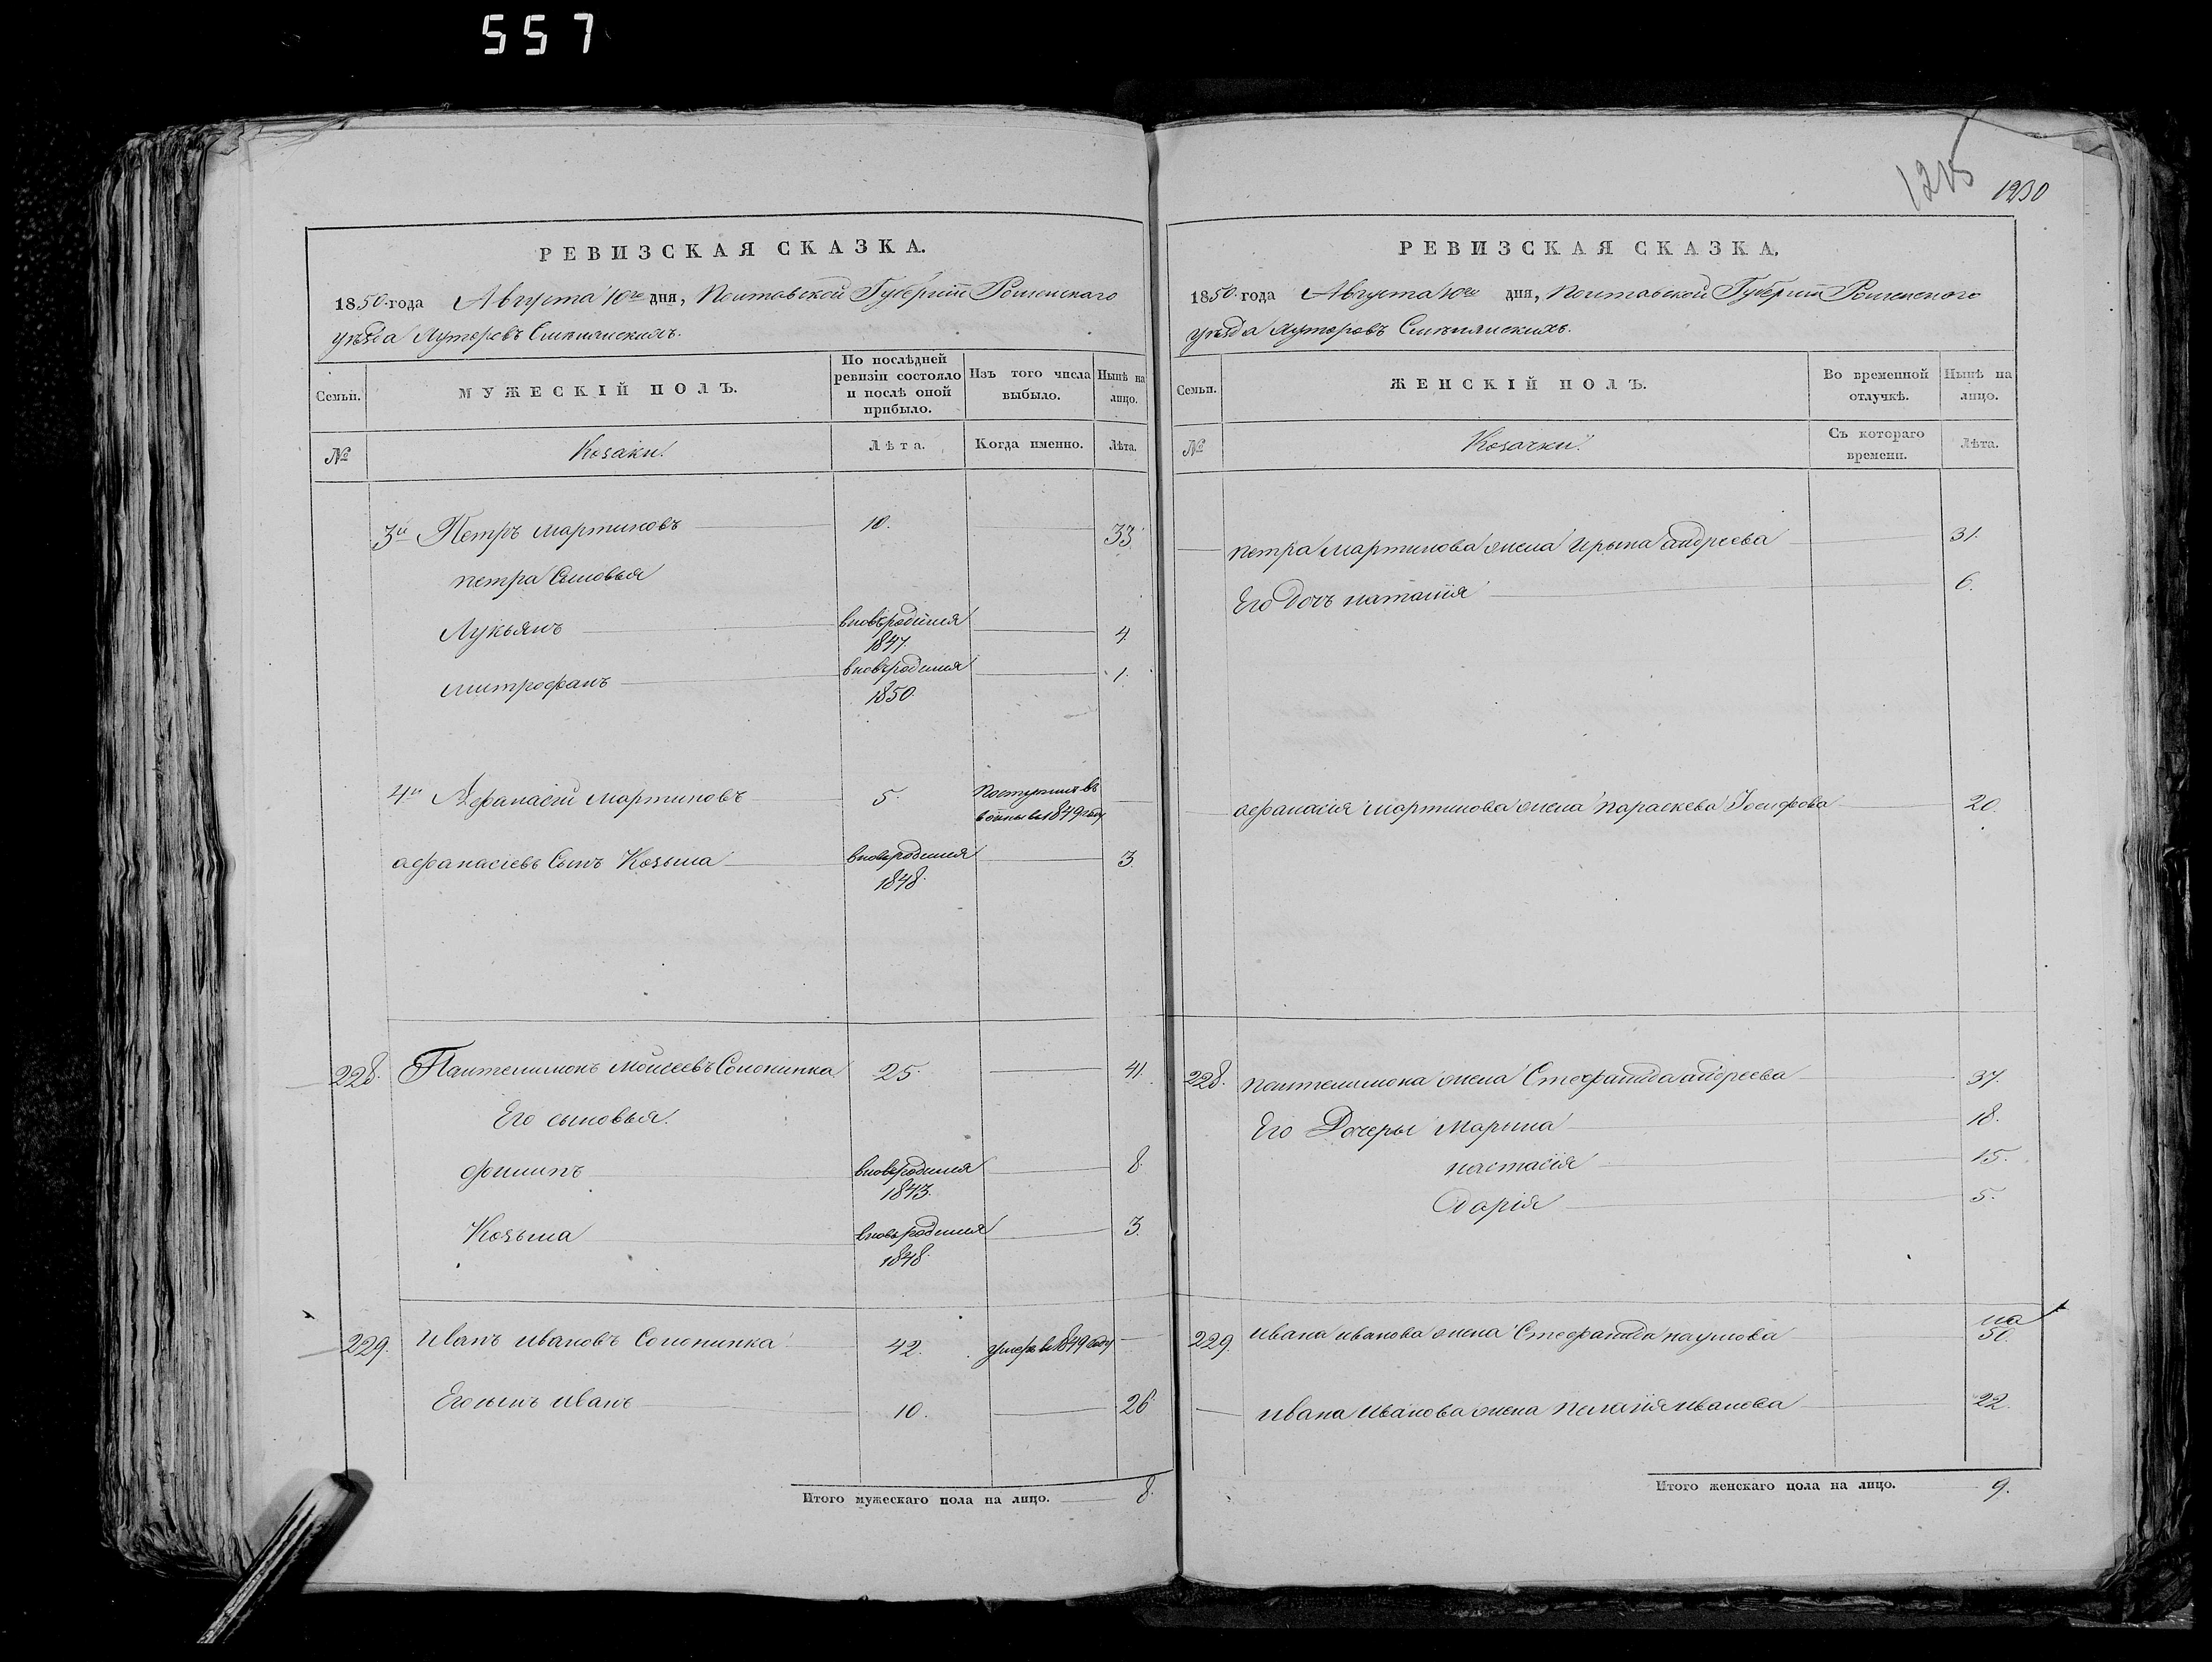 557
1215
1230
РЕВИЗСКАЯ СКАЗКА.
1850 года Августа 10го дня, Полтавской Губерніи Роменскаго
уѣзда Хуторовъ Смѣлянскихъ.
Семьи.
МУЖЕСКІЙ ПОЛЪ.
По послѣдней ревизіи состояло и послѣ оной прибыло.
Изъ того числа выбыло.
Нынѣ на лицо.
№
Козаки.
Лѣта.
Когда именно.
Лѣта.
3й Петръ Мартиновъ 10. 33
петра Сыновья
Лукьянъ вновьродился 1847. 4
митрофанъ вновьродился 1850. 1.
4й Афанасій Мартиновъ 5. поступилъ въ 1849 году
афанасіевъ Сынъ Козьма вновьродился 1848. 3.
228. Пантелимонъ Моисеевъ 25. 41.
Его сыновья.
филипъ вновьродился 1843. 8.
Козьма вновьродился 1848. 3.
229. Иванъ ивановъ 42. умеръ въ 1849 году
Его сынъ иванъ 10. 26
Итого мужескаго пола на лицо. 8.
РЕВИЗСКАЯ СКАЗКА.
1850 года Августа 10го дня, Полтавской Губерніи Роменского
уѣзда хуторовъ Смѣлянскихъ.
Семьи.
ЖЕНСКІЙ ПОЛЪ.
Во временной отлучкѣ.
Нынѣ на лицо.
№
Козачки.
Съ котораго времени.
Лѣта.
петра мартинова жена Ирына андреева 31.
Его дочь наталія 6.
афанасія мартинова жена параскева Іосифова 20.
228. пантелимона жена Стефанида андреева 37.
Его Дочеры Марина 18.
настасія 15.
Дарія 5.
229. ивана иванова жена Стефанида наумова 50.
ивана Иванова жена пелагія иванова 22.
Итого женскаго пола на лицо. 9.